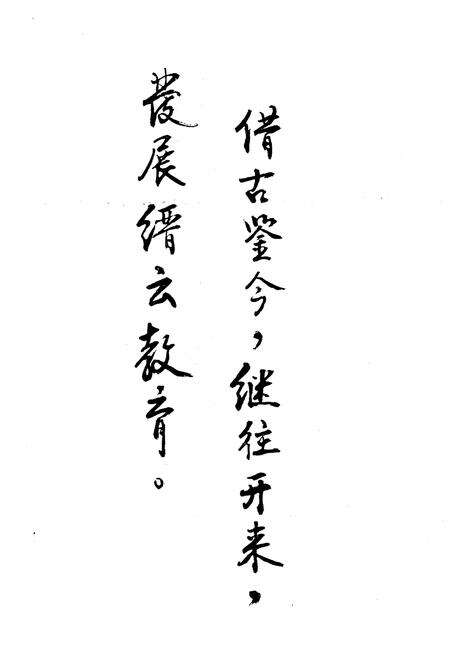 借古鉴今，继往开来，
發展缙云教育。